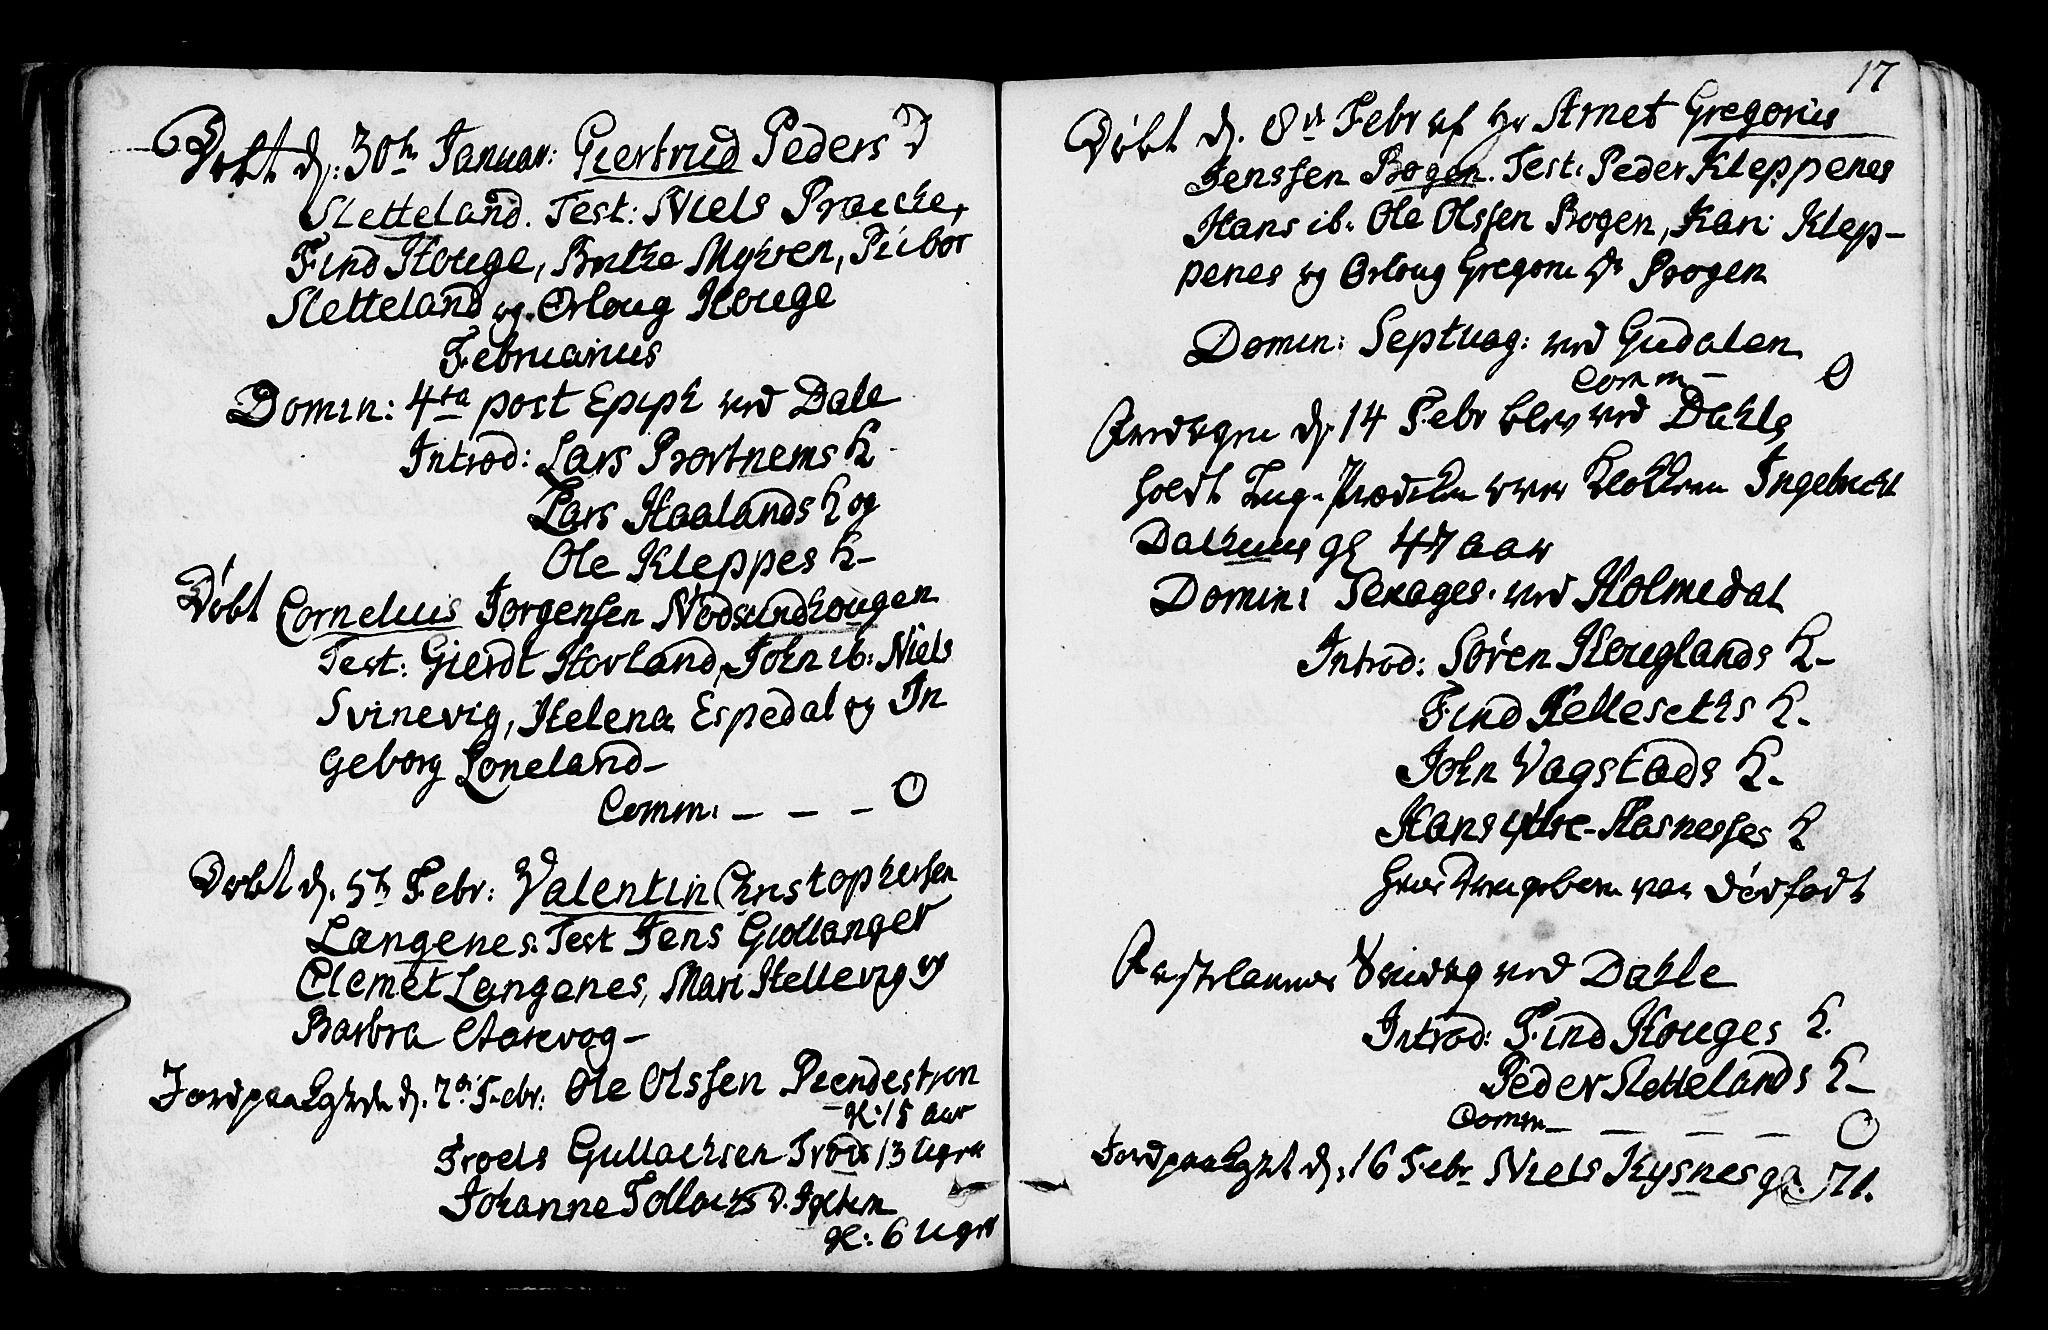 Døbt d. 30te Januar: Giertrud Peders D
Sletteland. Test: Niels Præcke,
Find Houge, Birthe Myhren, Ribor
Sletteland og Orloug Houge
Februarius
Domin: 4ta post Epiph ved Dale
Introd: Lars Bortnems K.
Lars Haalands K og
Ole Kleppes K-
Døbt Cornelius Jørgensen Nødsundhougen
Test: Gierdt Hovland, John ib: Niels
Svinevig, Helena Espedal og In
geborg Loneland-
Comm: - - - O
Døbt d. 5te Febr: Valentin Christophersen
Langenes. Test Jens Gullanger
Clemet Langenes, Mari Hellevig og
Barbra Aarevog-
Jordpaakast d. 7de Febr: Ole Olssen Rendestrøn
gl: 15 aar
Troels Gullachsen 13 Ugr
Johanne Tollachs D.
gl: 6 Ugr
17
Døbt d. 8de Febr af Hr Arnet Gregorius
Jenssen Bogen. Test: Peder Kleppenes
Hans ib. Ole Olssen Bogen, Kari Klep-
penes og Orloug Gregori D. Bogen
Domin: Septuag: ved Gudalen
Comm - O
d. 14 Febr blev ved Dahle
holdt Liig-Prædiken over Klokkeren Ingebricht
gl 47 aar
Domin: Sexages. ved Holmedal
Introd: Søren Houglands K-
Find Helleseths K.
John Vagstads K-
Hans ytre-Hasnesses K
hvis var dødfødt
Fastelauns Søndag ved Dahle
Introd: Find Houges K.
Peder Slettelands K-
Comm - - - - O
Jordpaakast d. 16 Febr Niels Kysnes gl. 71.